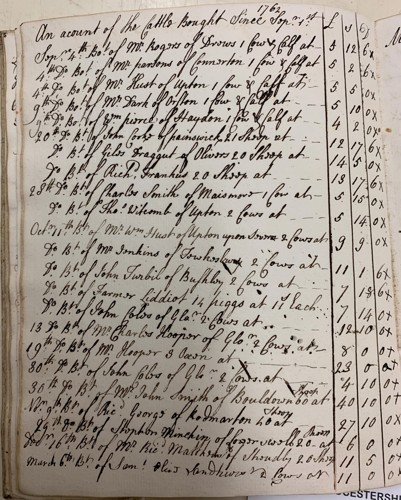 1762
An acount of the Cattle Bought Since Sepr 1st £ s d
Sepr 4th Bot of Mr Rogers of Drews 1 Cow & Calf at 5 12 6x
Do Bot of Mr parsons of Connorton 1 Cow & Calf at 5 2 6x
4th Do Bt of Mr Hust of Upton 1 Cow & Calf at 5 5 0x
9th Do Bt of Mr Dark of Orton 1 Cow & Calf at 5 10 0x
9th Do Bt of Wm pierce of Haydon 1 Cow & Calf at 4 2 0x
20th Do Bt of John Cook of painswick 21 Sheep at 12 17 6x
Do Bt of Giles Draggut of Olivers 20 Sheep at 14 5 0x
Do Bt of Richd 20 Sheep at 13 17 6x
28th Do Bt of Charles Smith of Maismore 1 Cow at 5 15 0x
Do Bt of Tho: Witcomb of Upton 2 Cows at 5 14 0x
Octr Bt of Mr Wm Hust of Upton upon Severn 2 Cows at 9 9 0x
Do Bt of Mr Jenkins of 2 Cows at 11 1 6x
Do Bt of John of Bushley 2 Cows at 7 13 6x
Do Bt of Farmer Liddiot 14 piggs at 11s Each 7 14 0x
Do Bt of John Coles of Glor 2 Cows at 12 10 0x
13 Do Bt of Mr Charles Hooper of Glor 2 Cows at 8 0 0x
19th Do Bt of Mr Hooper 3 Oxen at 23 0 0x
30th Do Bt of John Coles of Glr 2 Cows at 4 10 0x
30th Do Bt of Mr John Smith of Bouldown 60 Sheep at 40 10 0x
Novr 9th Bt of Ric: George of Rodmarton 40 Sheep at 27 10 0x
24th Do Bt of Stephen of 20 Sheep at 6 0 0x
Decr 6th Bt of Mr Ric: Matthews of 20 Sheep 11 5 0x
March 6th Bt of Saml 2 Cows at 11 0 0x